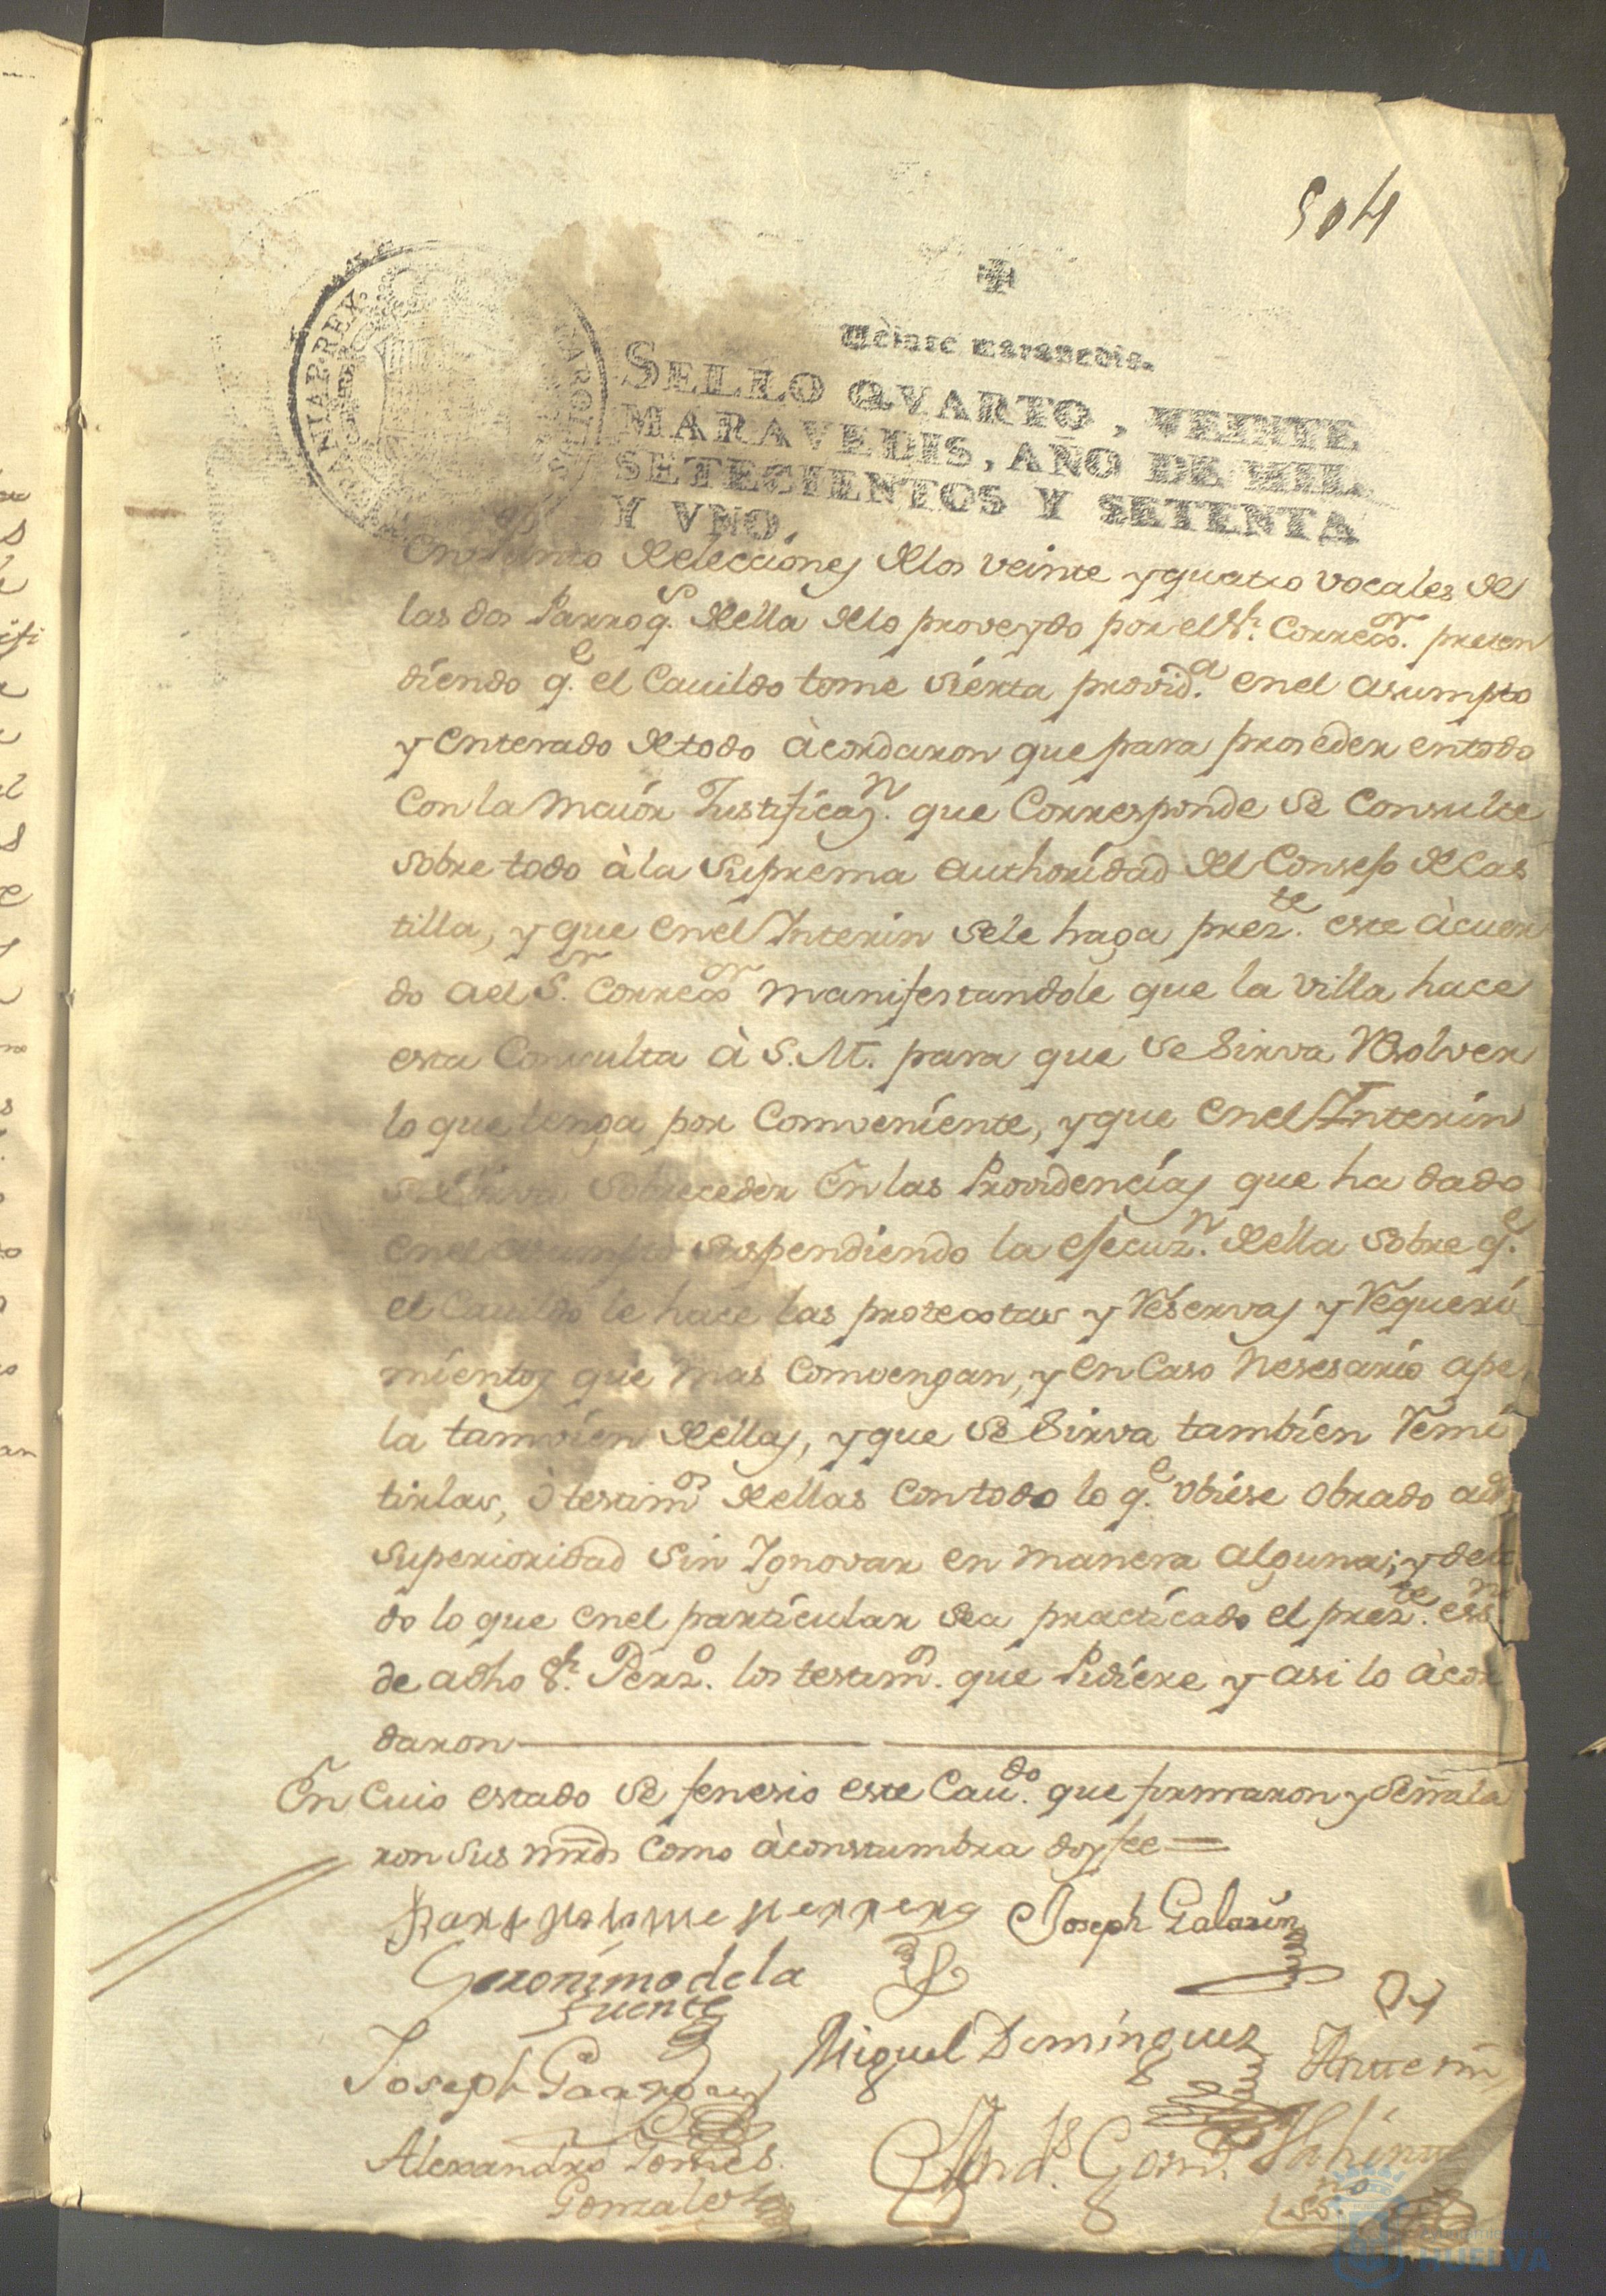 504
Veinte maravedis.
SELLO QVARTO, VEINTE
MARAVEDIS, AÑO DE MIL
SETECIENTOS Y SETENTA
Y VNO.
HISPANIAR. REX.
CAROLUS
de elecciones de los veinte y quatro vocales de
las dos Parroq.s de ella de lo proveydo por el S.r Correg.or preten
diendo q.e el Cauildo tome sierta provid.a en el asumpto
y enterado de todo àcordaron que para proseder en todo
con la maior Justificaz.n que Corresponde se Consulte
sobre todo à la Suprema authoridad del Consejo de Cas
tilla, y que en el Interin se le haga prez.te este àcuer
do a el S.or Correg.or manifestandole que la villa hace
esta Consulta à S. M. para que se sirva Resolver
lo que tenga por Comveniente, y que en el Interin
se sirva sobreceder En las Providencias que ha dado
en el asumpto suspendiendo la ejecuz.n de ella sobre q.e
el Cauildo le hace las protextas y Réservas y Réqueri
mientos que mas Comvengan, y en Caso nesesario ape
la tamvien de ellas, y que se sirva tambien Remi
tirlas, ò testim.o de ellas con todo lo q.e obiese obrado a dha
Superioridad sin Ygnovar en manera alguna; y de to
do lo que en el particular sea practicado el prez.te ess.no
de a dho S.r Perz.o los testim.os que Pidiere y asi lo àcor
daron
En Cuio estado se fenesio este Cau.do que firmaron y señala
ron sus mrds como àcostumbra doy fee =
Joseph Galarin
Geronimo de la
fuente
Miguel Dominguez
Joseph Garrido
Ante mi
Alexandro Gomes
Gonzales
And.s Gom.z
ess.no
HUELVA